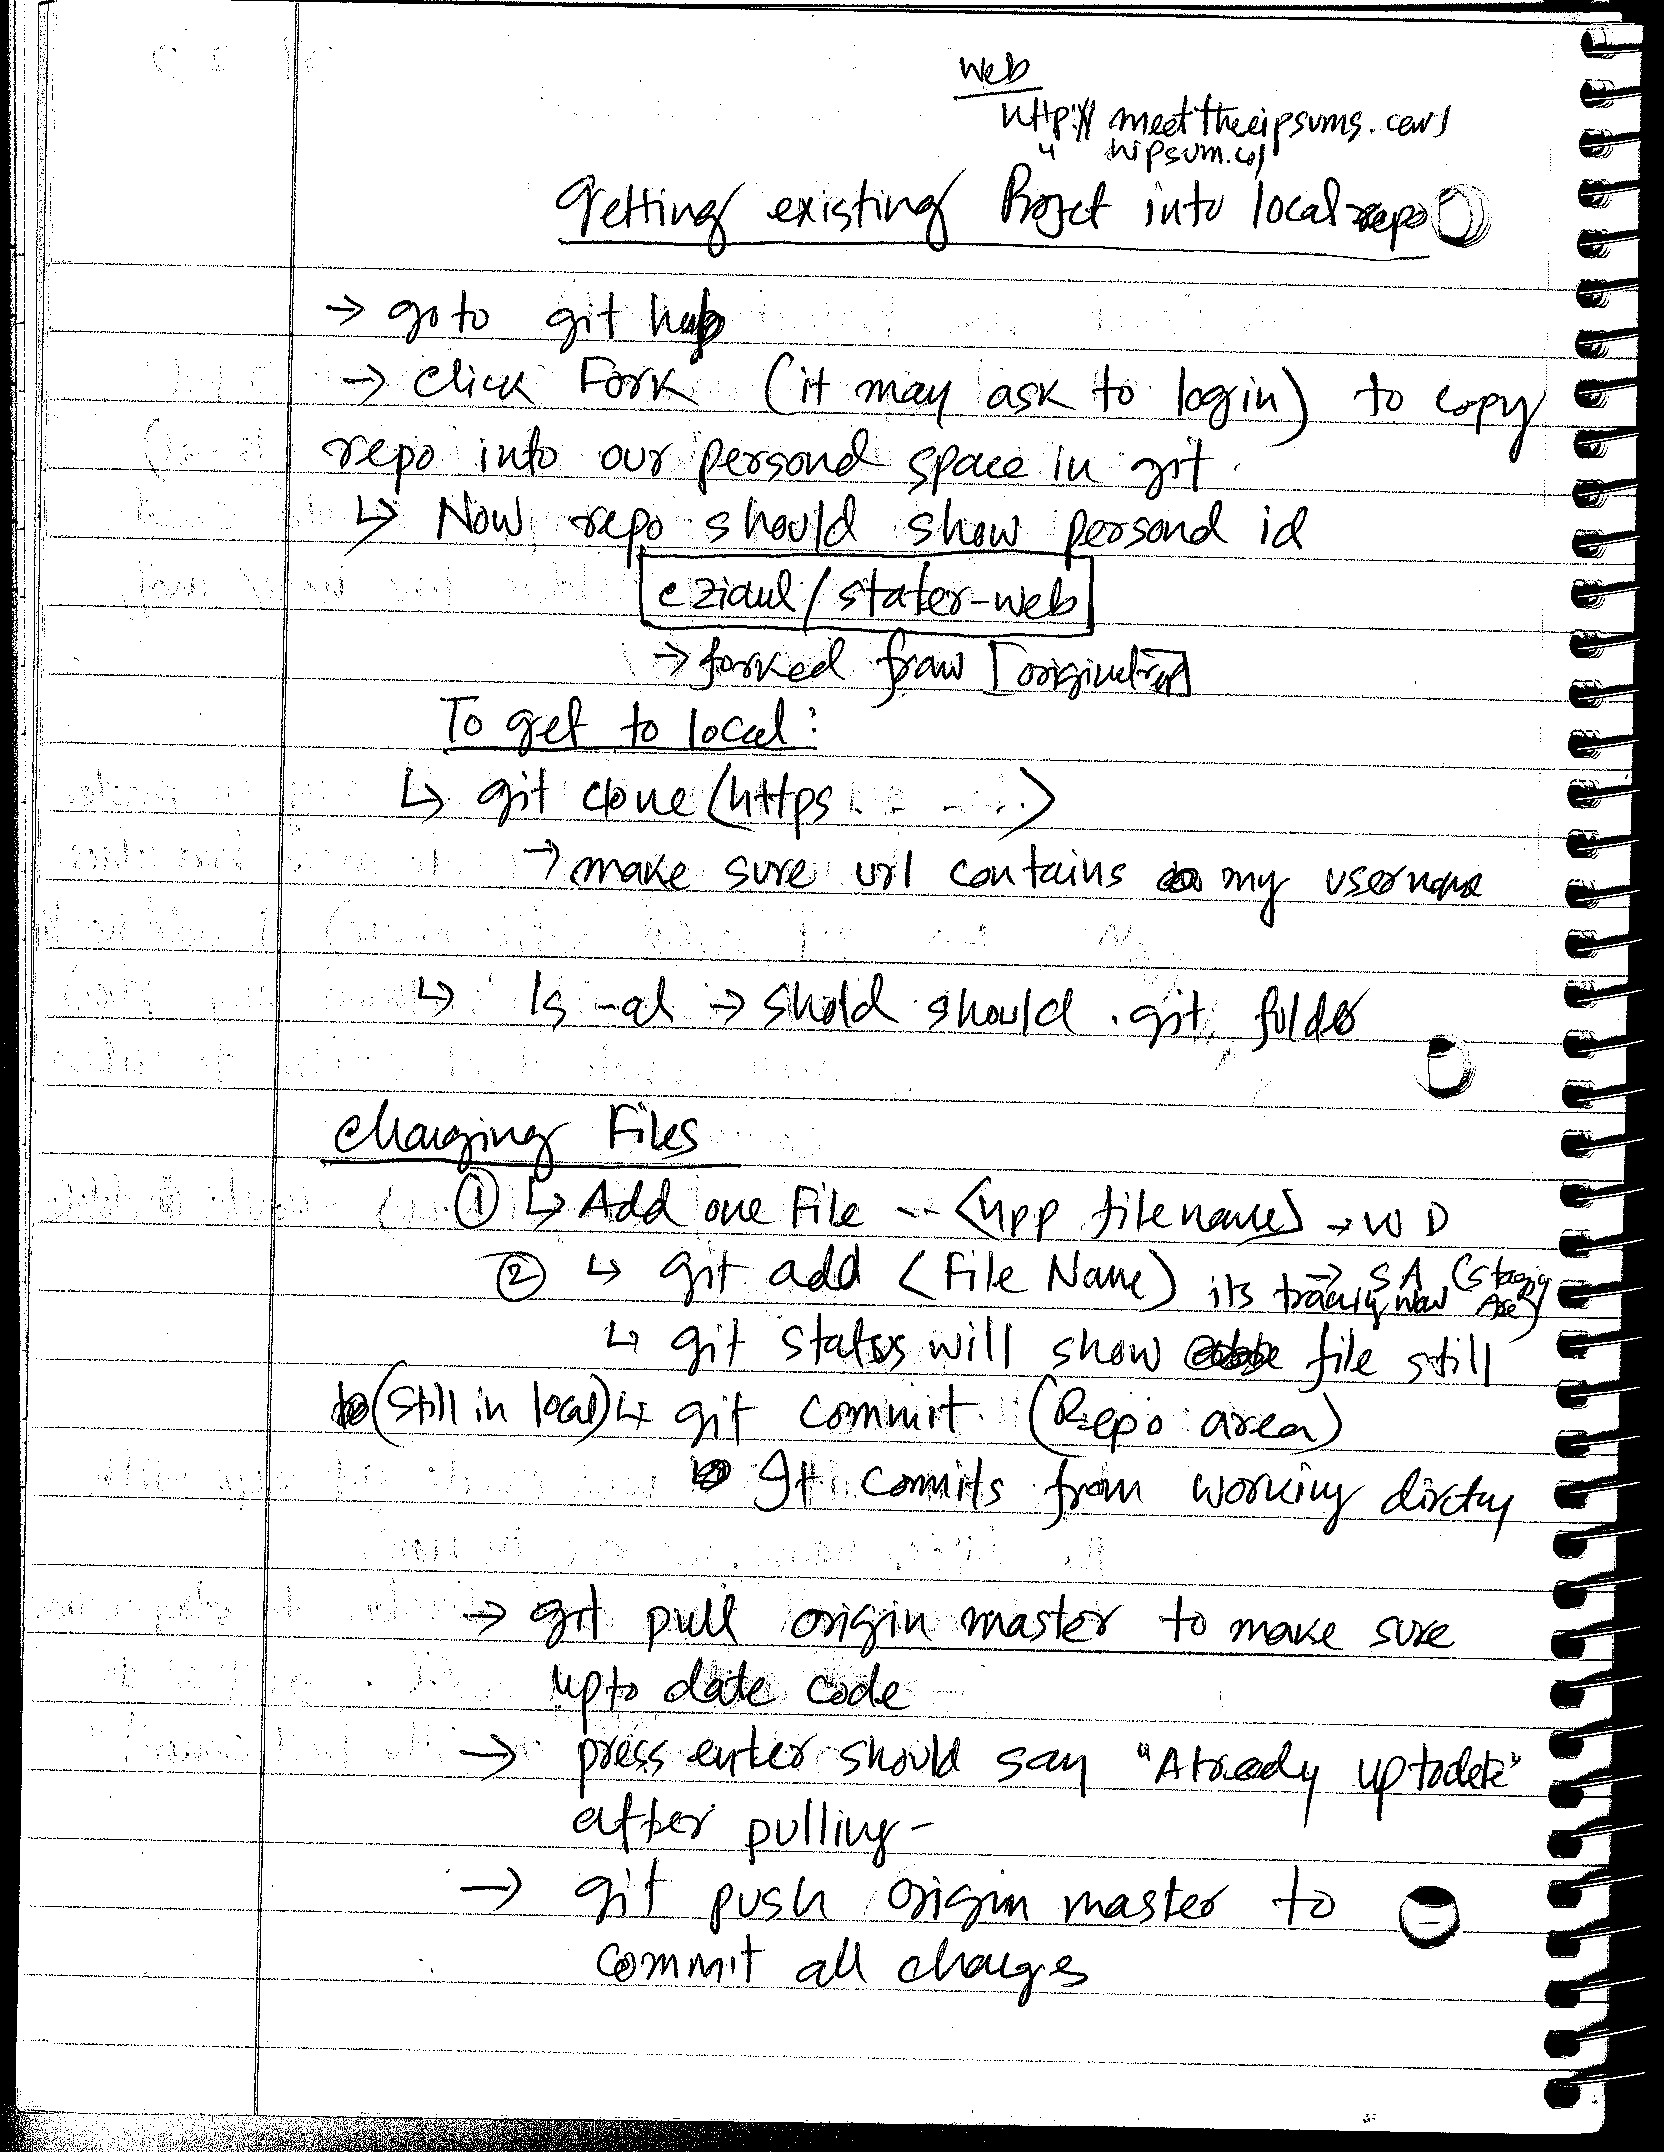 web
http:// meettheipsums.com/
" hipsum.co/
Getting existing Projet into local repo
→ go to git hub
→ click Fork (it may ask to login) to copy
repo into our personal space in git.
↳ Now repo should show personal id
eziaul/stater-web
→ forked from [original rep]
To get to local:
↳ git clone (https. - - ...)
→ make sure url contains my username
↳ ls -al → shold should .git folder
Changing Files
① ↳ Add one File -- <npp filename> → WD
② ↳ git add <File Name> its tracking now → SA (Staging Area)
↳ git status will show file still
(still in local) ↳ git commit. (Repo area)
It commits from working dirctry
→ git pull origin master to make sure
upto date code
→ press enter should say "Already uptodate"
after pulling -
→ git push origin master to
commit all changes